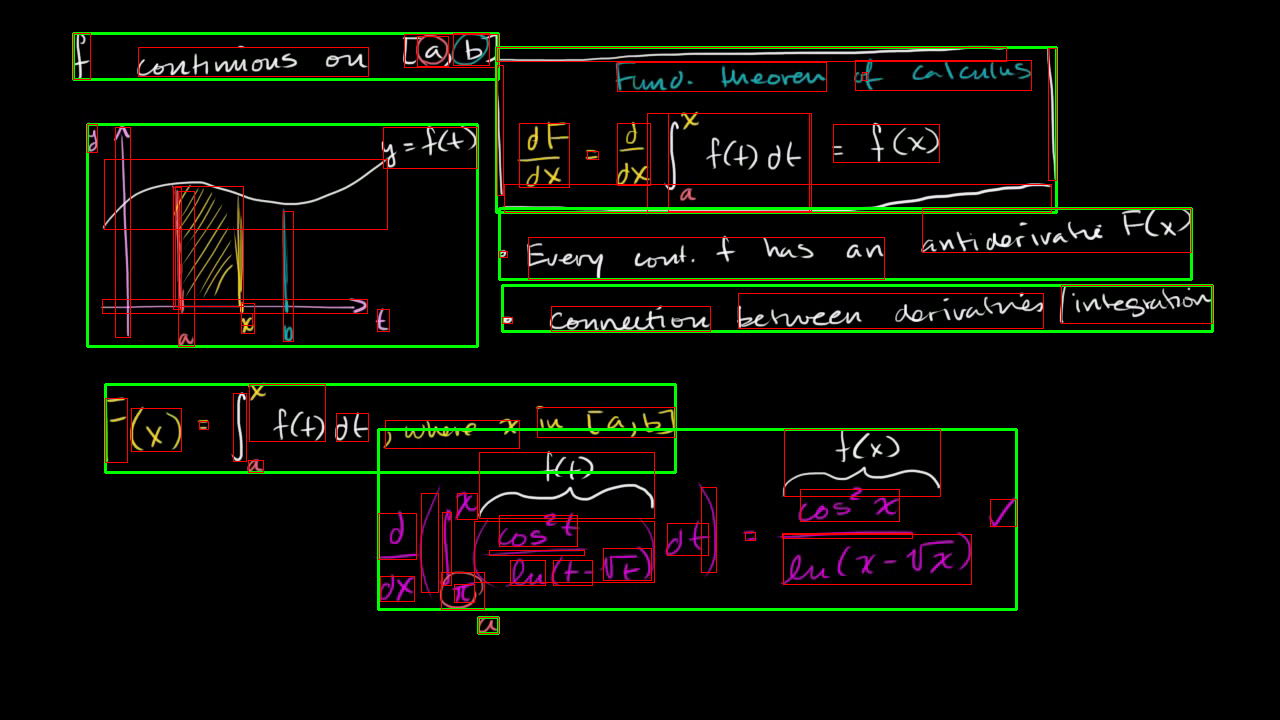 f continuous on [a, b]
Fund. theorem of calculus
dF/dx = d/dx ∫_a^x f(t) dt = f(x)
y
y = f(t)
a x b t
• Every cont. f has an antiderivative F(x)
• connection between derivatives / integration
F(x) = ∫_a^x f(t) dt, where x in [a, b]
f(t) f(x)
d/dx ( ∫_π^x ( cos² t / ln(t - √t) ) dt ) = cos² x / ln(x - √x) ✓
a